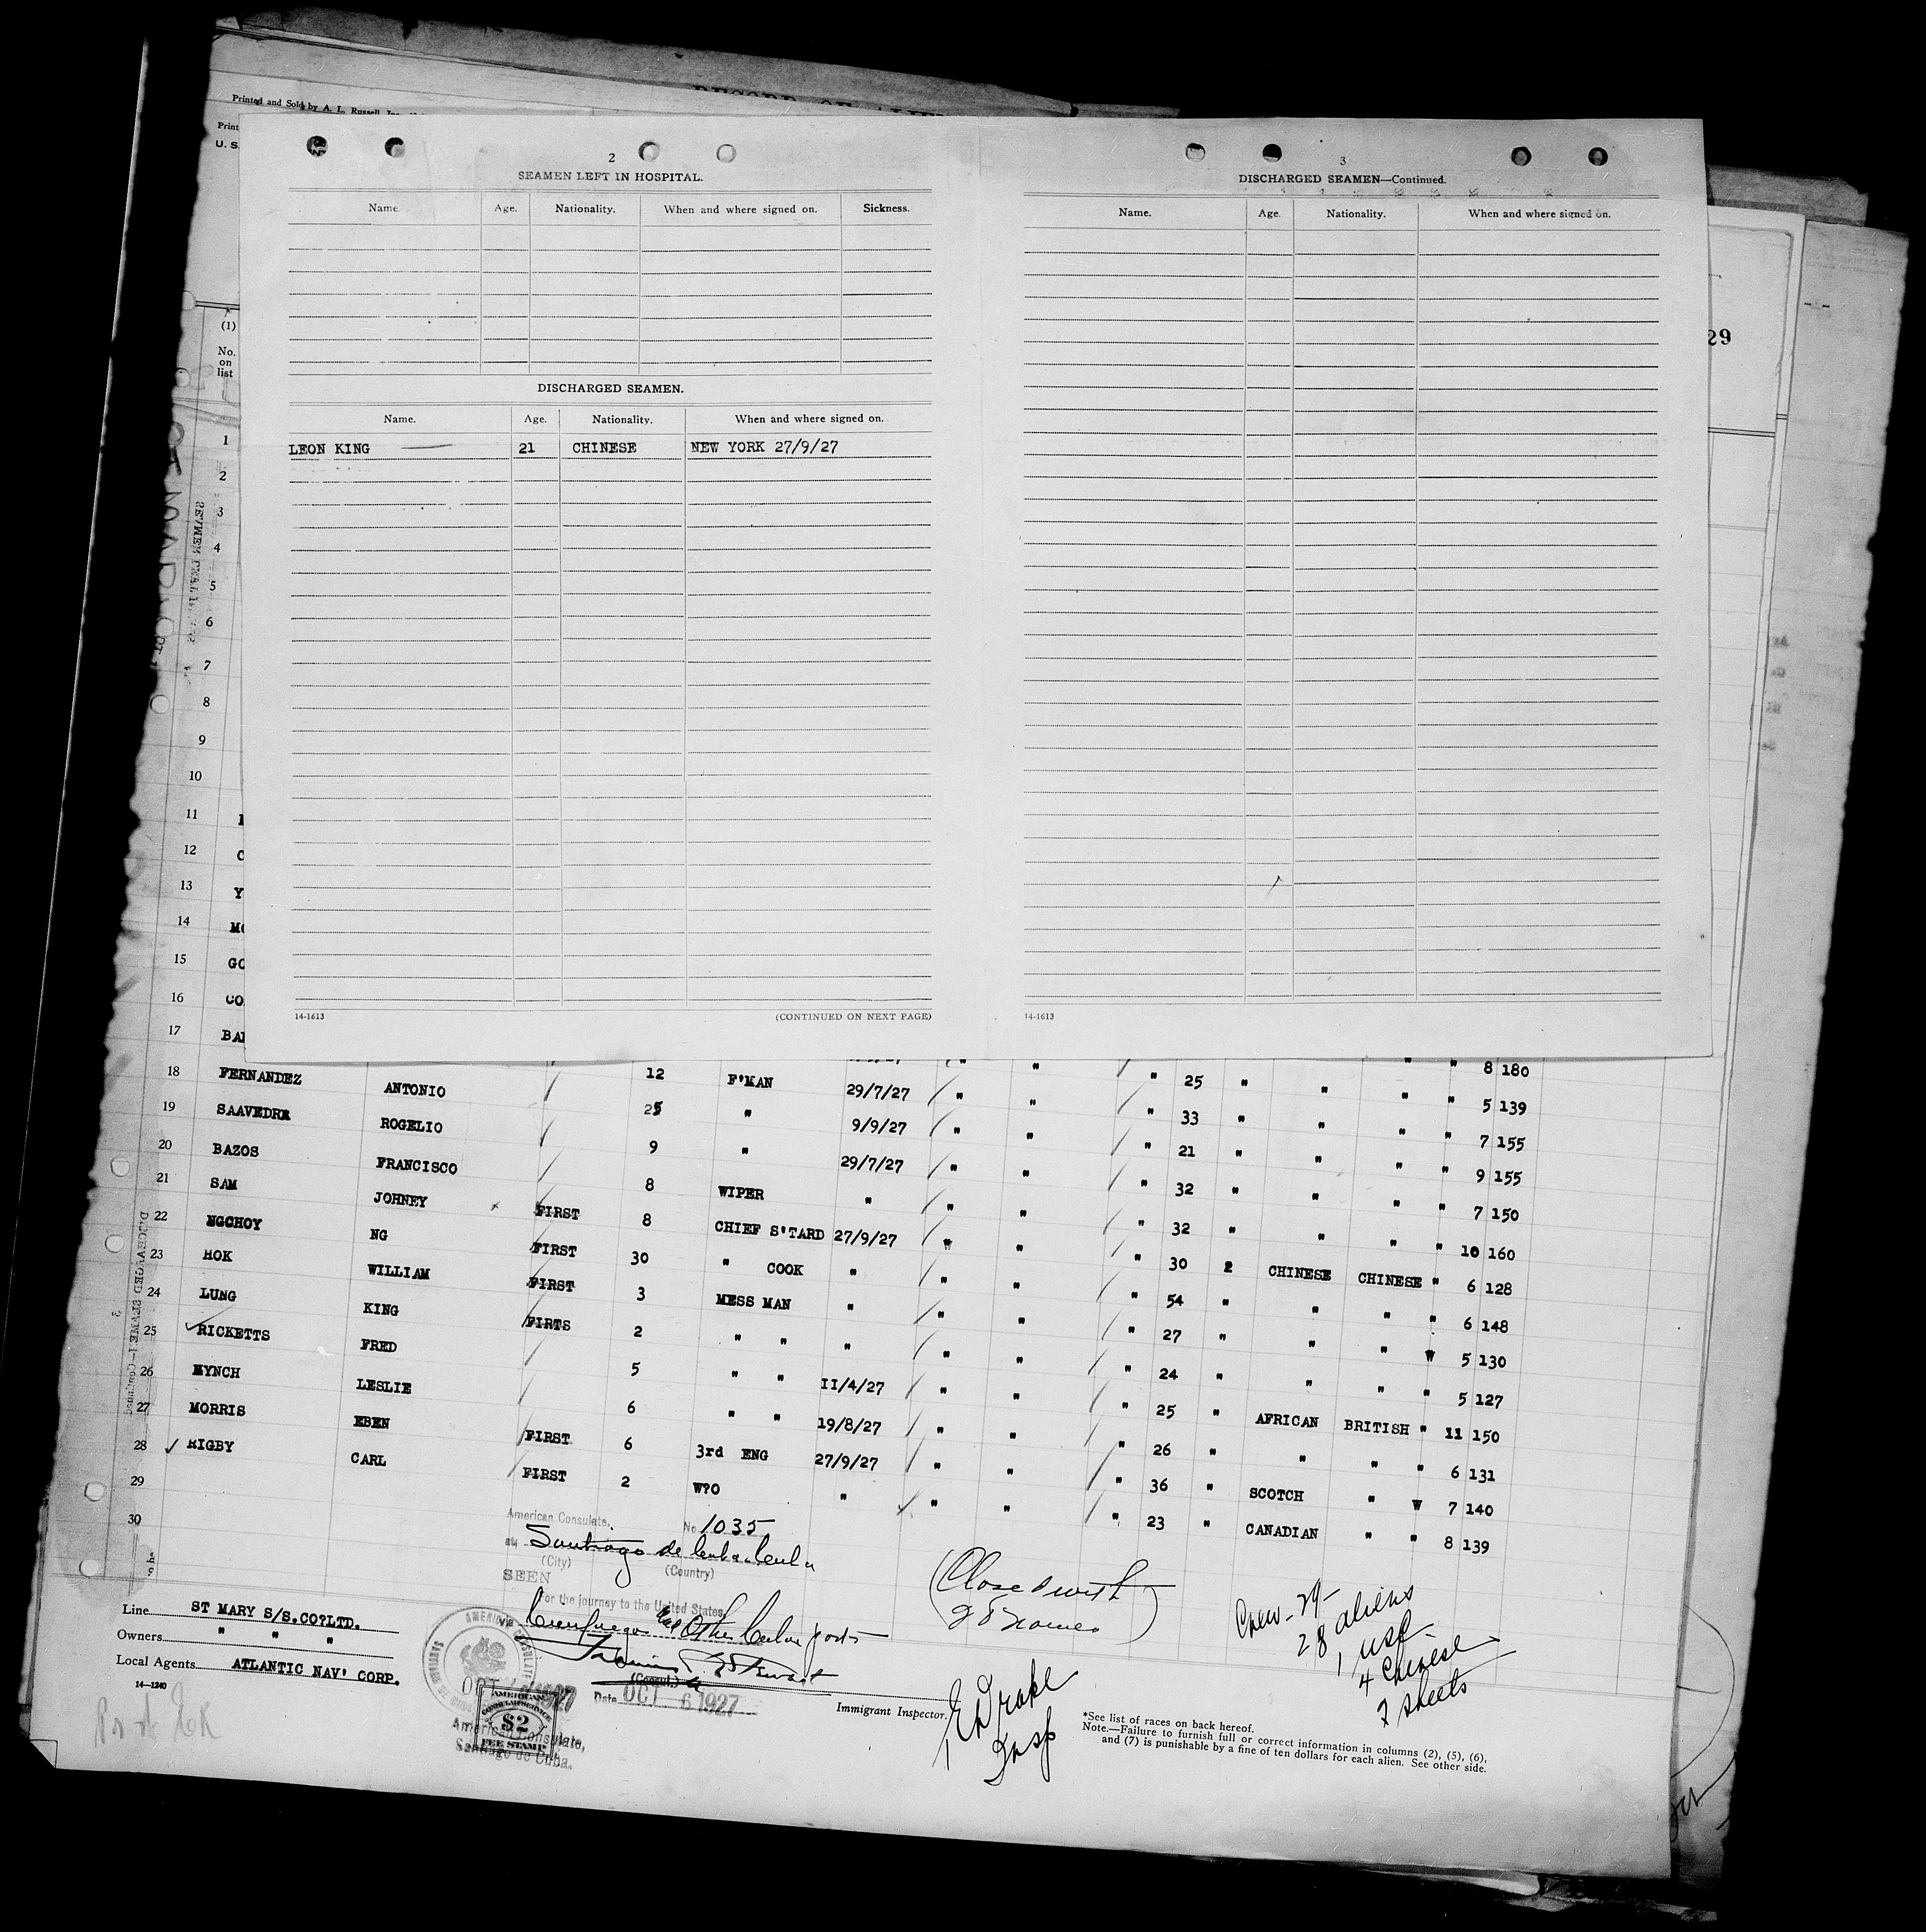 Printed and Sold by A. L. Russell
Print
U. S.
RECORD OF ALIE
2
SEAMEN LEFT IN HOSPITAL.
Name. Age. Nationality. When and where signed on. Sickness.
DISCHARGED SEAMEN.
Name. Age. Nationality. When and where signed on.
LEON KING 21 CHINESE NEW YORK 27/9/27
14-1613 (CONTINUED ON NEXT PAGE)
3
DISCHARGED SEAMEN—Continued.
Name. Age. Nationality. When and where signed on.
14-1613
29
(1)
No.
on
list
1
2
3
4
5
6
7
8
9
10
11
12 C
13 Y
14 MC
15 GO
16 CO
8 180
" 25 " " " " 5 139
17 BA 12 F'MAN 29/7/27 " " " 33 " " " " 7 155
18 FERNANDEZ ANTONIO 25 " 9/9/27 " " " 21 " " " " 9 155
19 SAAVEDRA ROGELIO 9 " 29/7/27 " " " 32 " " " " 7 150
20 BAZOS FRANCISCO 8 WIPER " " " " 32 " " " " 10 160
21 SAM JOHNEY FIRST 8 CHIEF S'TARD 27/9/27 " " " 30 2 CHINESE CHINESE " 6 128
22 NGCHOY NG FIRST 30 " COOK " " " " 54 " " " " 6 148
23 HOK WILLIAM FIRST 3 MESS MAN " " " " 27 " " " " 5 130
24 LUNG KING FIRTS 2 " " " " " " 24 " " " " 5 127
25 RICKETTS FRED 5 " " 11/4/27 " " " 25 " AFRICAN BRITISH " 11 150
26 HYNCH LESLIE 6 " " 19/8/27 " " " 26 " " " " 6 131
27 MORRIS EBEN FIRST 6 3rd ENG 27/9/27 " " " 36 " SCOTCH " " 7 140
28 RIGBY CARL FIRST 2 W?O " " " " 23 " CANADIAN " " 8 139
29
30
SEAMEN LEFT IN
DISCHARGED SEAMEN—Continued
3
American Consulate, No. 1035
at Santiago de Cuba, Cuba
(City) (Country)
SEEN
For the journey to the United States,
via Cienfuegos and Other Cuban ports
(Consul.)
Date OCT 6 1927
AMERICAN
CONSULAR SERVICE
$2
FEE STAMP
American Consulate,
Santiago de Cuba.
(Closed with
28 names)
Crew - 29 -
28 aliens
1 USC
4 Chinese
2 sheets
Line ST MARY S/S.CO?LTD.
Owners " " "
Local Agents ATLANTIC NAV' CORP.
14—1240
Immigrant Inspector.
E Drake
Insp
*See list of races on back hereof.
Note.—Failure to furnish full or correct information in columns (2), (5), (6),
and (7) is punishable by a fine of ten dollars for each alien. See other side.